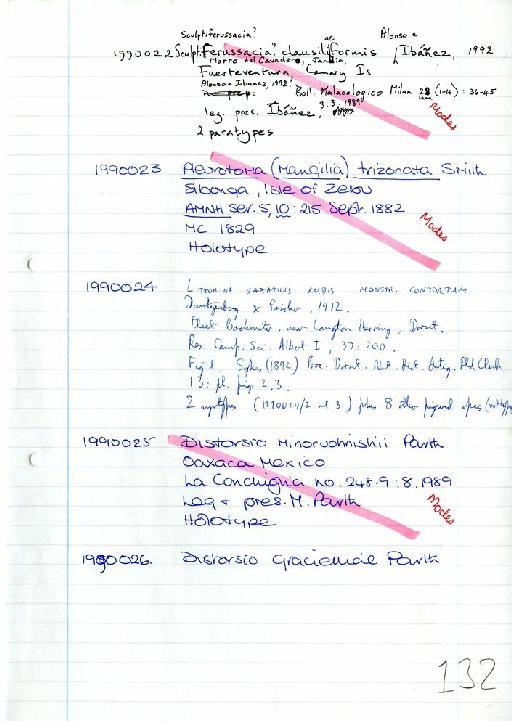 Sculptiferussacia? Alonso &
1990022 Sculpt. Ferussacia? clausiliformis Ibáñez, 1992
Morro del Cavadero, Jandia,
Fuerteventura, Canary Is
Alonso & Ibanez, 1992: Boll. Malacologico Milan 28 (1-4): 36-45
leg. pres. Ibáñez, 3.3.1989
2 paratypes
Modes
1990023 Pleurotoma (Mangilia) trizonata Smith
Sibonga, Isle of Zebu
AMNH Ser. 5, 10: 215 Sept. 1882
MC 1829
Holotype
Modes
1990024 LITTORINA SAXATILIS RUDIS MONSTR. CONTORTAM
Dautzenberg & Fischer, 1912.
Fleet Backwater, near Langton Herring, Dorset.
Res. Camp. Sci. Albert I, 37: 200.
Fig'd Sykes (1892) Proc. Dorset. Nat. Hist. Antiq. Fld. Club
13: pl. figs 2, 3.
2 syntypes (1990024/2 & 3) plus 8 other figured spec
1990025 Distorsio Minoruohnishii Parth
Oaxaca Mexico
La Conchiglia no. 248-9: 8, 1989
Leg & pres. M. Parth
Holotype
Modes
1990026. Distorsio Graceiellae Parth
132